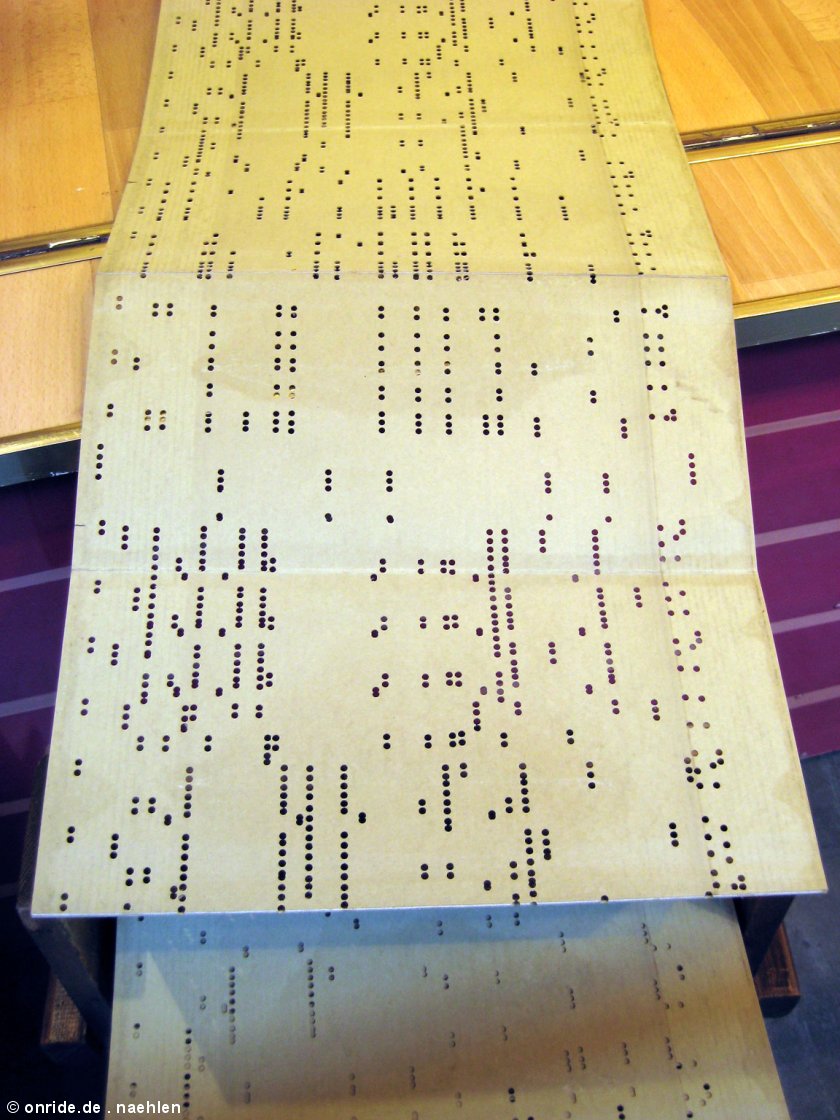 © onride.de . naehlen